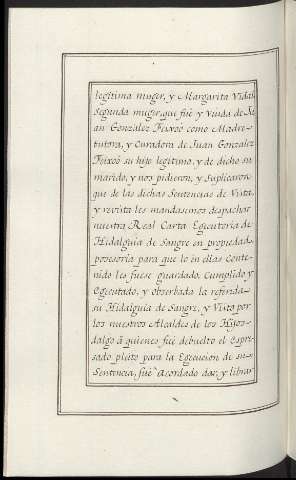 legitima muger, y Margarita Vidal
segunda muger, que fué y Viuda de Ju
an Gonzalez Feixoó como Madre
tutora, y Curadora de Juan Gonzalez
Feixoó su hijo legitimo, y de dicho su
marido, y nos pidieron, y suplicaron
que de las dichas Sentencias de Vista,
y revista les mandasemos despachar
nuestra Real Carta Egecutoria de
Hidalguia de Sangre en propiedad,
posesoria para que lo en ellas Conte-
nido les fuese guardado, Cumplido y
Egecutado, y obserbada la referida
su Hidalguia de Sangre, y Visto por
los nuestros Alcaldes de los Hijos-
dalgo á quienes fué debuelto el espre
sado pleito para la Egecucion de su
Sentencia, fué acordado dar, y librar